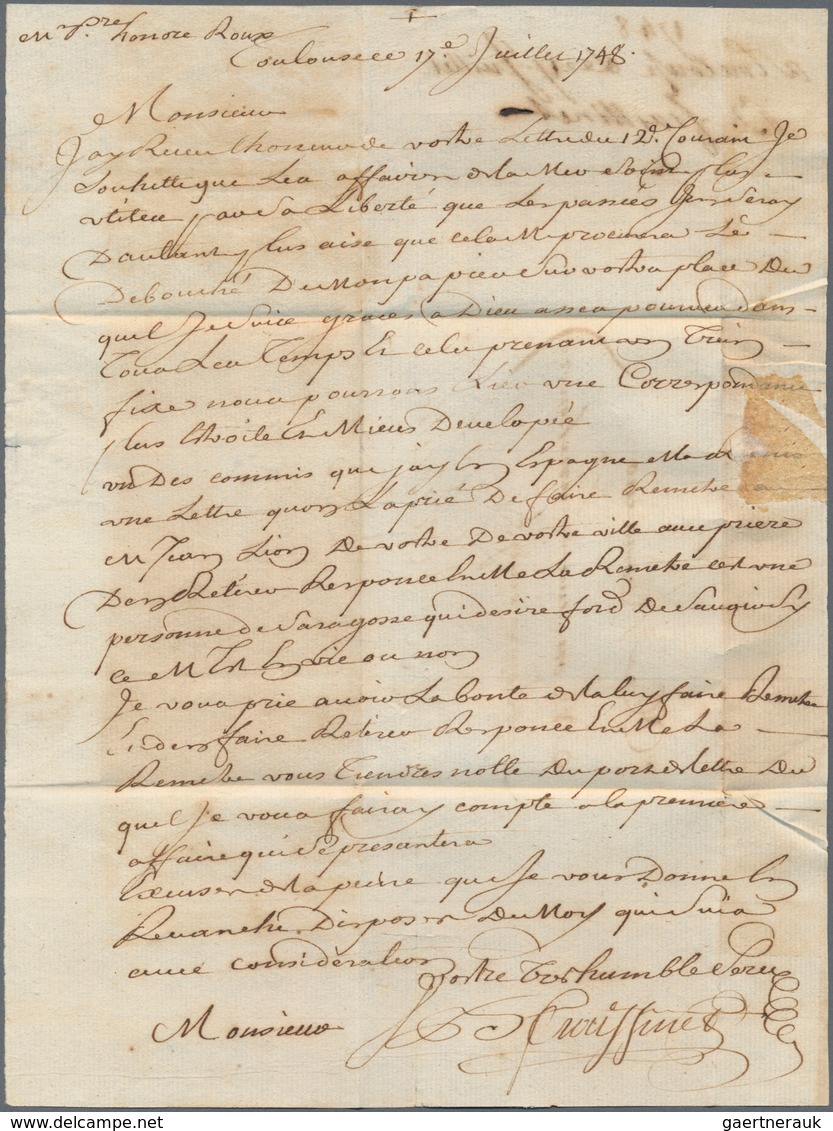 Mr pre honore Roux
Toulouse ce 17e Juillet 1748.
Monsieur
Jay Receu lhonneur de vostre Lettre du 12e Courant Je
souhette que Les affaires de la Mer soint plus
utiles par sa Liberté que Les passées Jen seray
Dautant plus aise que cela Me procurera Le
Debouché De Mon papier Sur vostre place Du
quel Je suis graces a Dieu assea pourveu dans
Tous Les Temps Et cela prenant un Train
fixe nous pourrons Lier une Correspondance
plus Etroite En Mieux Developée
un Des commis que jay En Espagne Ma
une Lettre quon La prié De faire Remetre a
M Jean Lion De vostre De vostre ville avec priere
Den Retirer Responce En Me La Remetre cest une
personne de Saragosse qui desire ford De Savoir Sy
ce M Est En vie ou non
Je vous prie avoir La bonté de la luy faire Remetre
Et den faire Retirer Responce En Me La
Remetre vous Tiendres notte Du port de lettre Du
quel Je vous fairay compte a la premiere
affaire qui se presantera
Excuses de la peine que Je vous Donne En
Revanche Disposes De Moy qui suis
avec consideration
Vostre Tres humble Serv
Monsieur